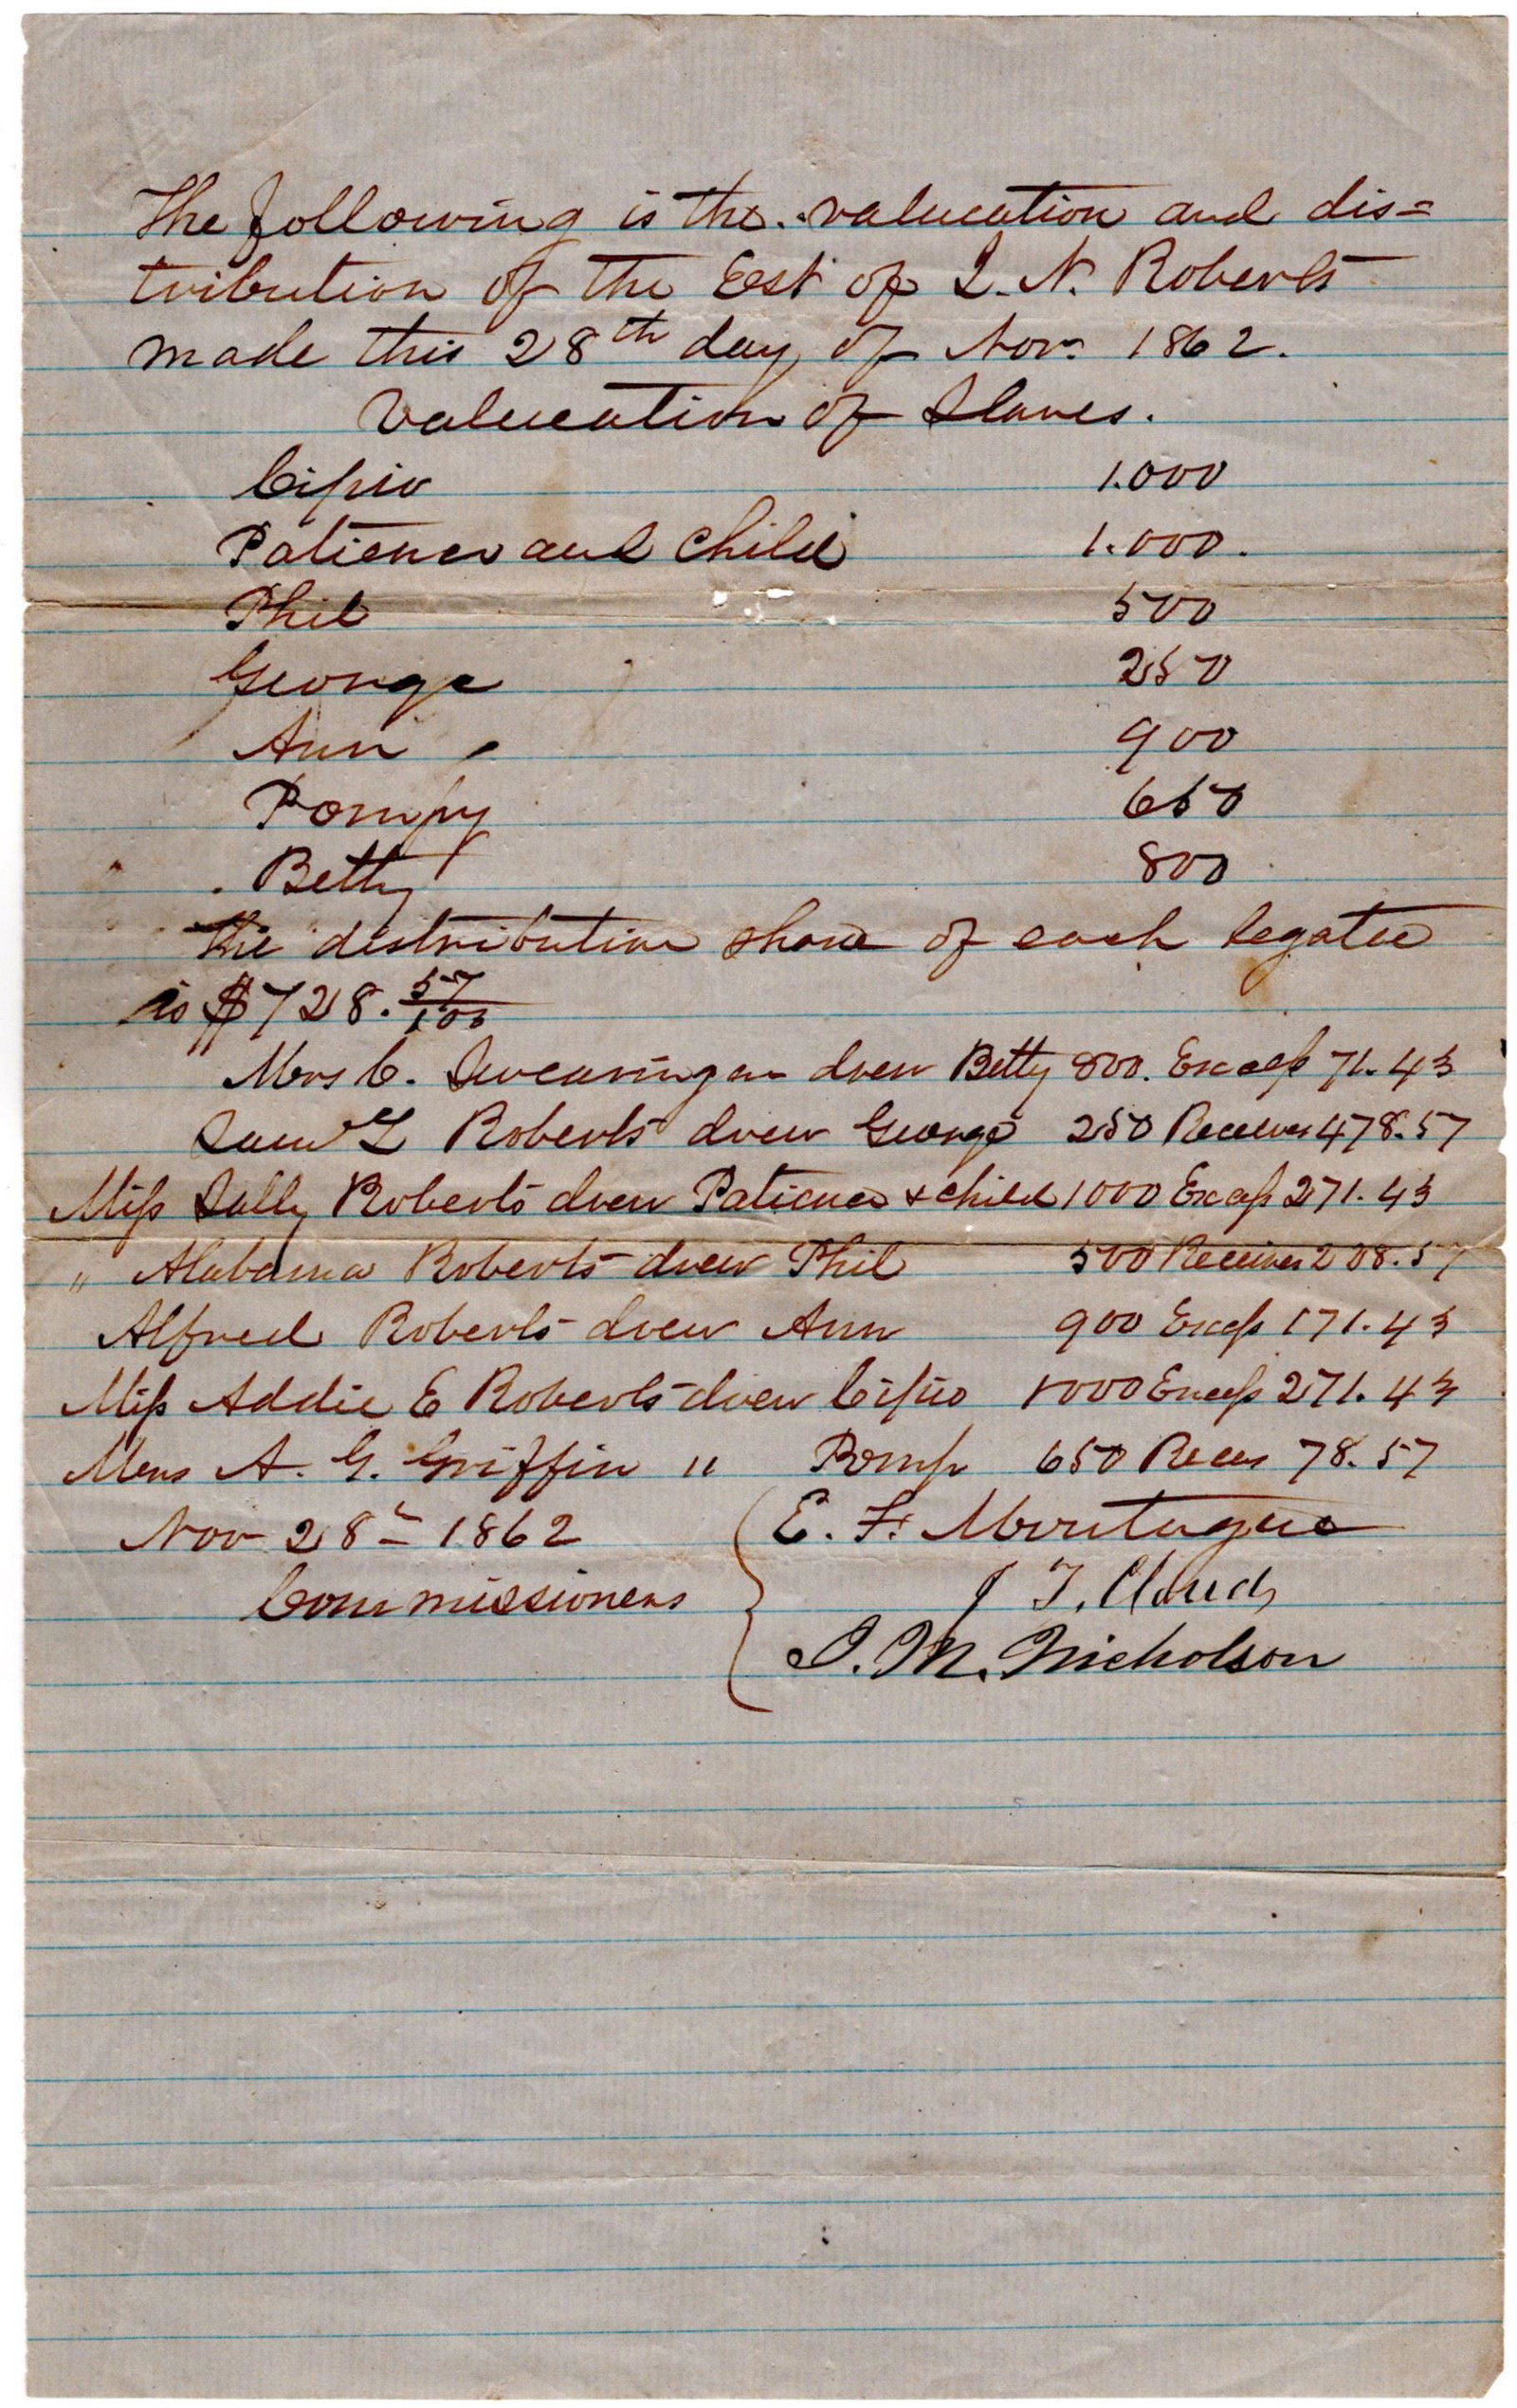 The following is the valucation and dis=
tribution of the Est of L. N. Roberts
made this 28th day of Nov. 1862.
Valucation of Slaves.
Cipio 1.000
Patience and Child 1.000.
Phil 500
George 250
Ann 900
Pompy 650
Betty 800
The distributive share of each legatee
is $728. 57/100
Mrs C. Swearingen drew Betty 800. Excess 71.43
Saml L Roberts drew George 250 Receives 478.57
Miss Sally Roberts drew Patience & child 1000 Excess 271.43
" Alabama Roberts drew Phil 500 Receives 208.57
Alfred Roberts drew Ann 900 Excess 171.43
Miss Addie E Roberts drew Cipio 1000 Excess 271.43
Mrs A. G. Griffin " Pomp 650 Reces 78.57
Nov 28th 1862 E. F. Montague
J T. Cloud
Commissioners
J. M. Nicholson